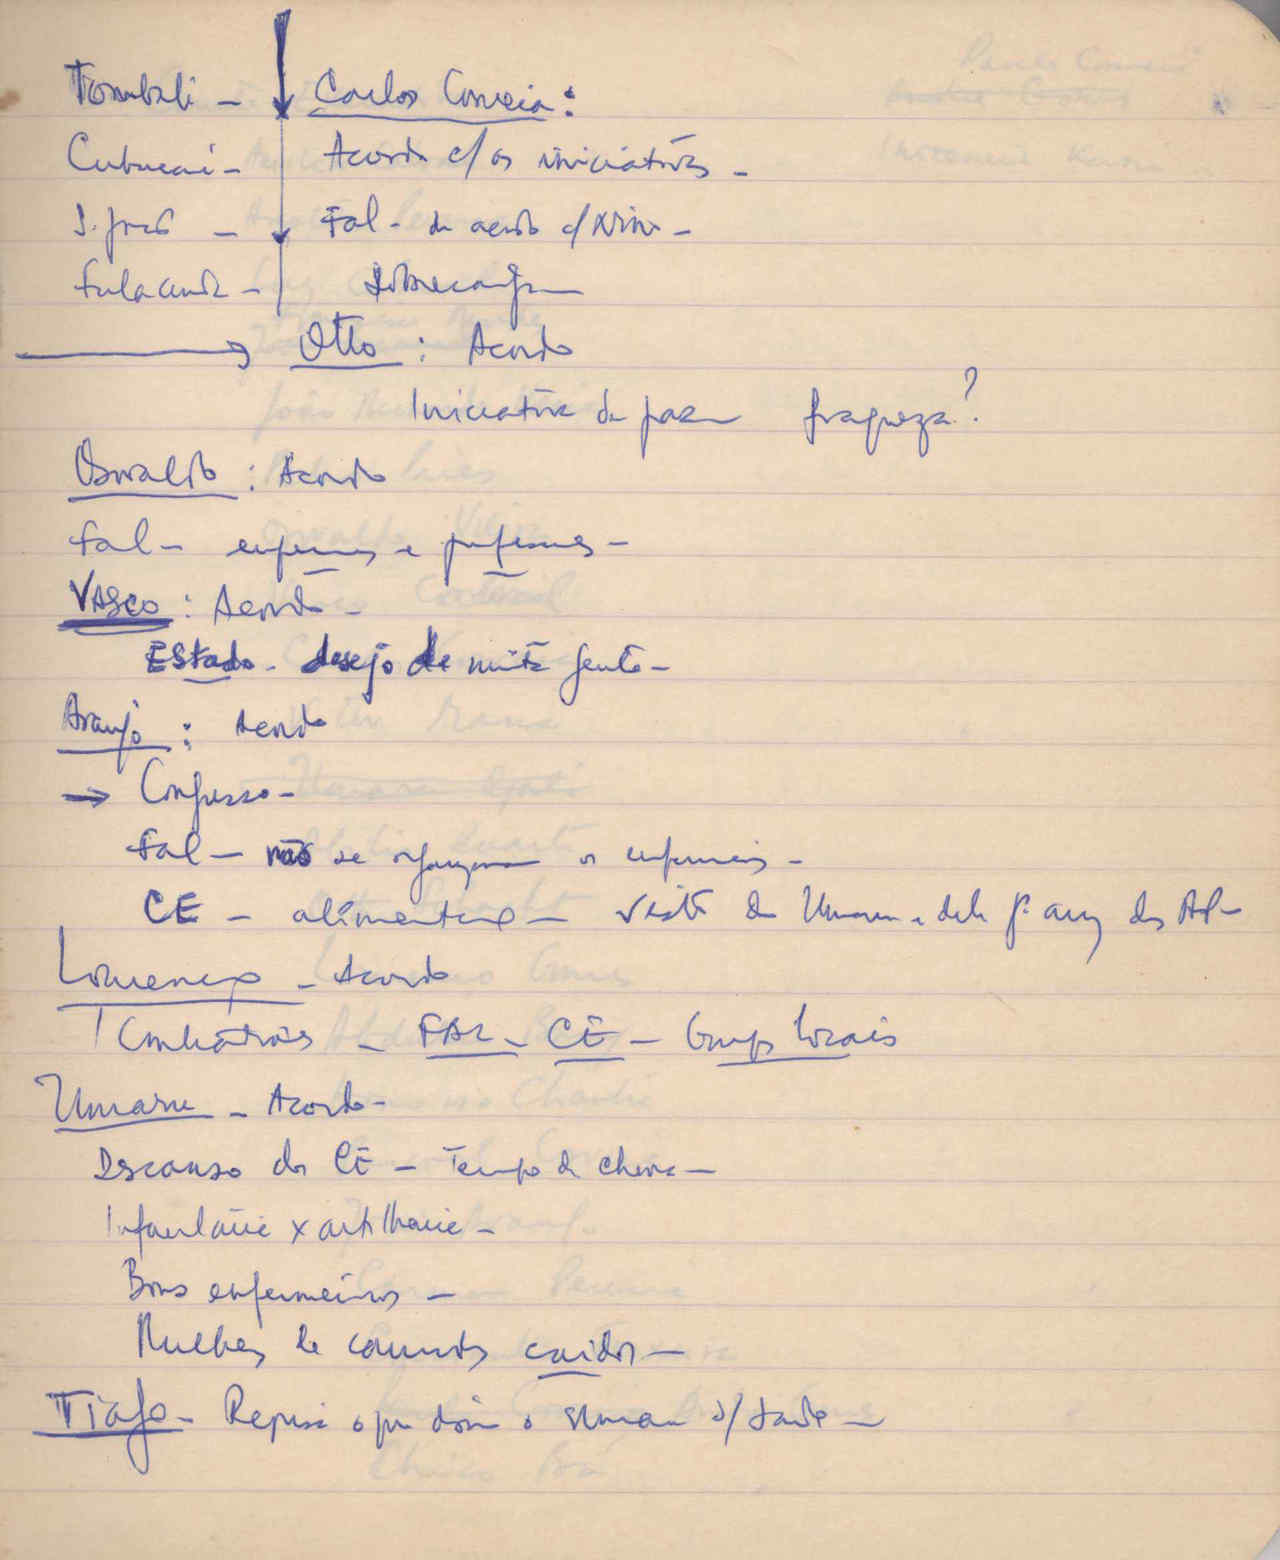 Tombali – Carlos Correia:
Cubucaré – Acordo c/ as iniciativas –
S. João – Fal – de acordo c/ Nino –
Fulacunda – Sobrecarga
Otto : Acordo
Iniciativa de paz fraqueza?
Osvaldo : Acordo
Fal – enfermeiros e professores –
VASCO : Acordo –
Estado – desejo de muita gente –
Araujo : Acordo
→ Congresso –
Fal – não se organizam os enfermeiros –
CE – alimentação – visita do Umaru e dele das AP –
Lourenço – Acordo
Combatentes – FAL – CE – Grupos locais
Umaru – Acordo –
Descanso dos CE – Tempo de chuva –
Infantaria x artilharia –
Bons enfermeiros –
Mulheres de camaradas caídos –
Tiago – o que o s/ saúde –